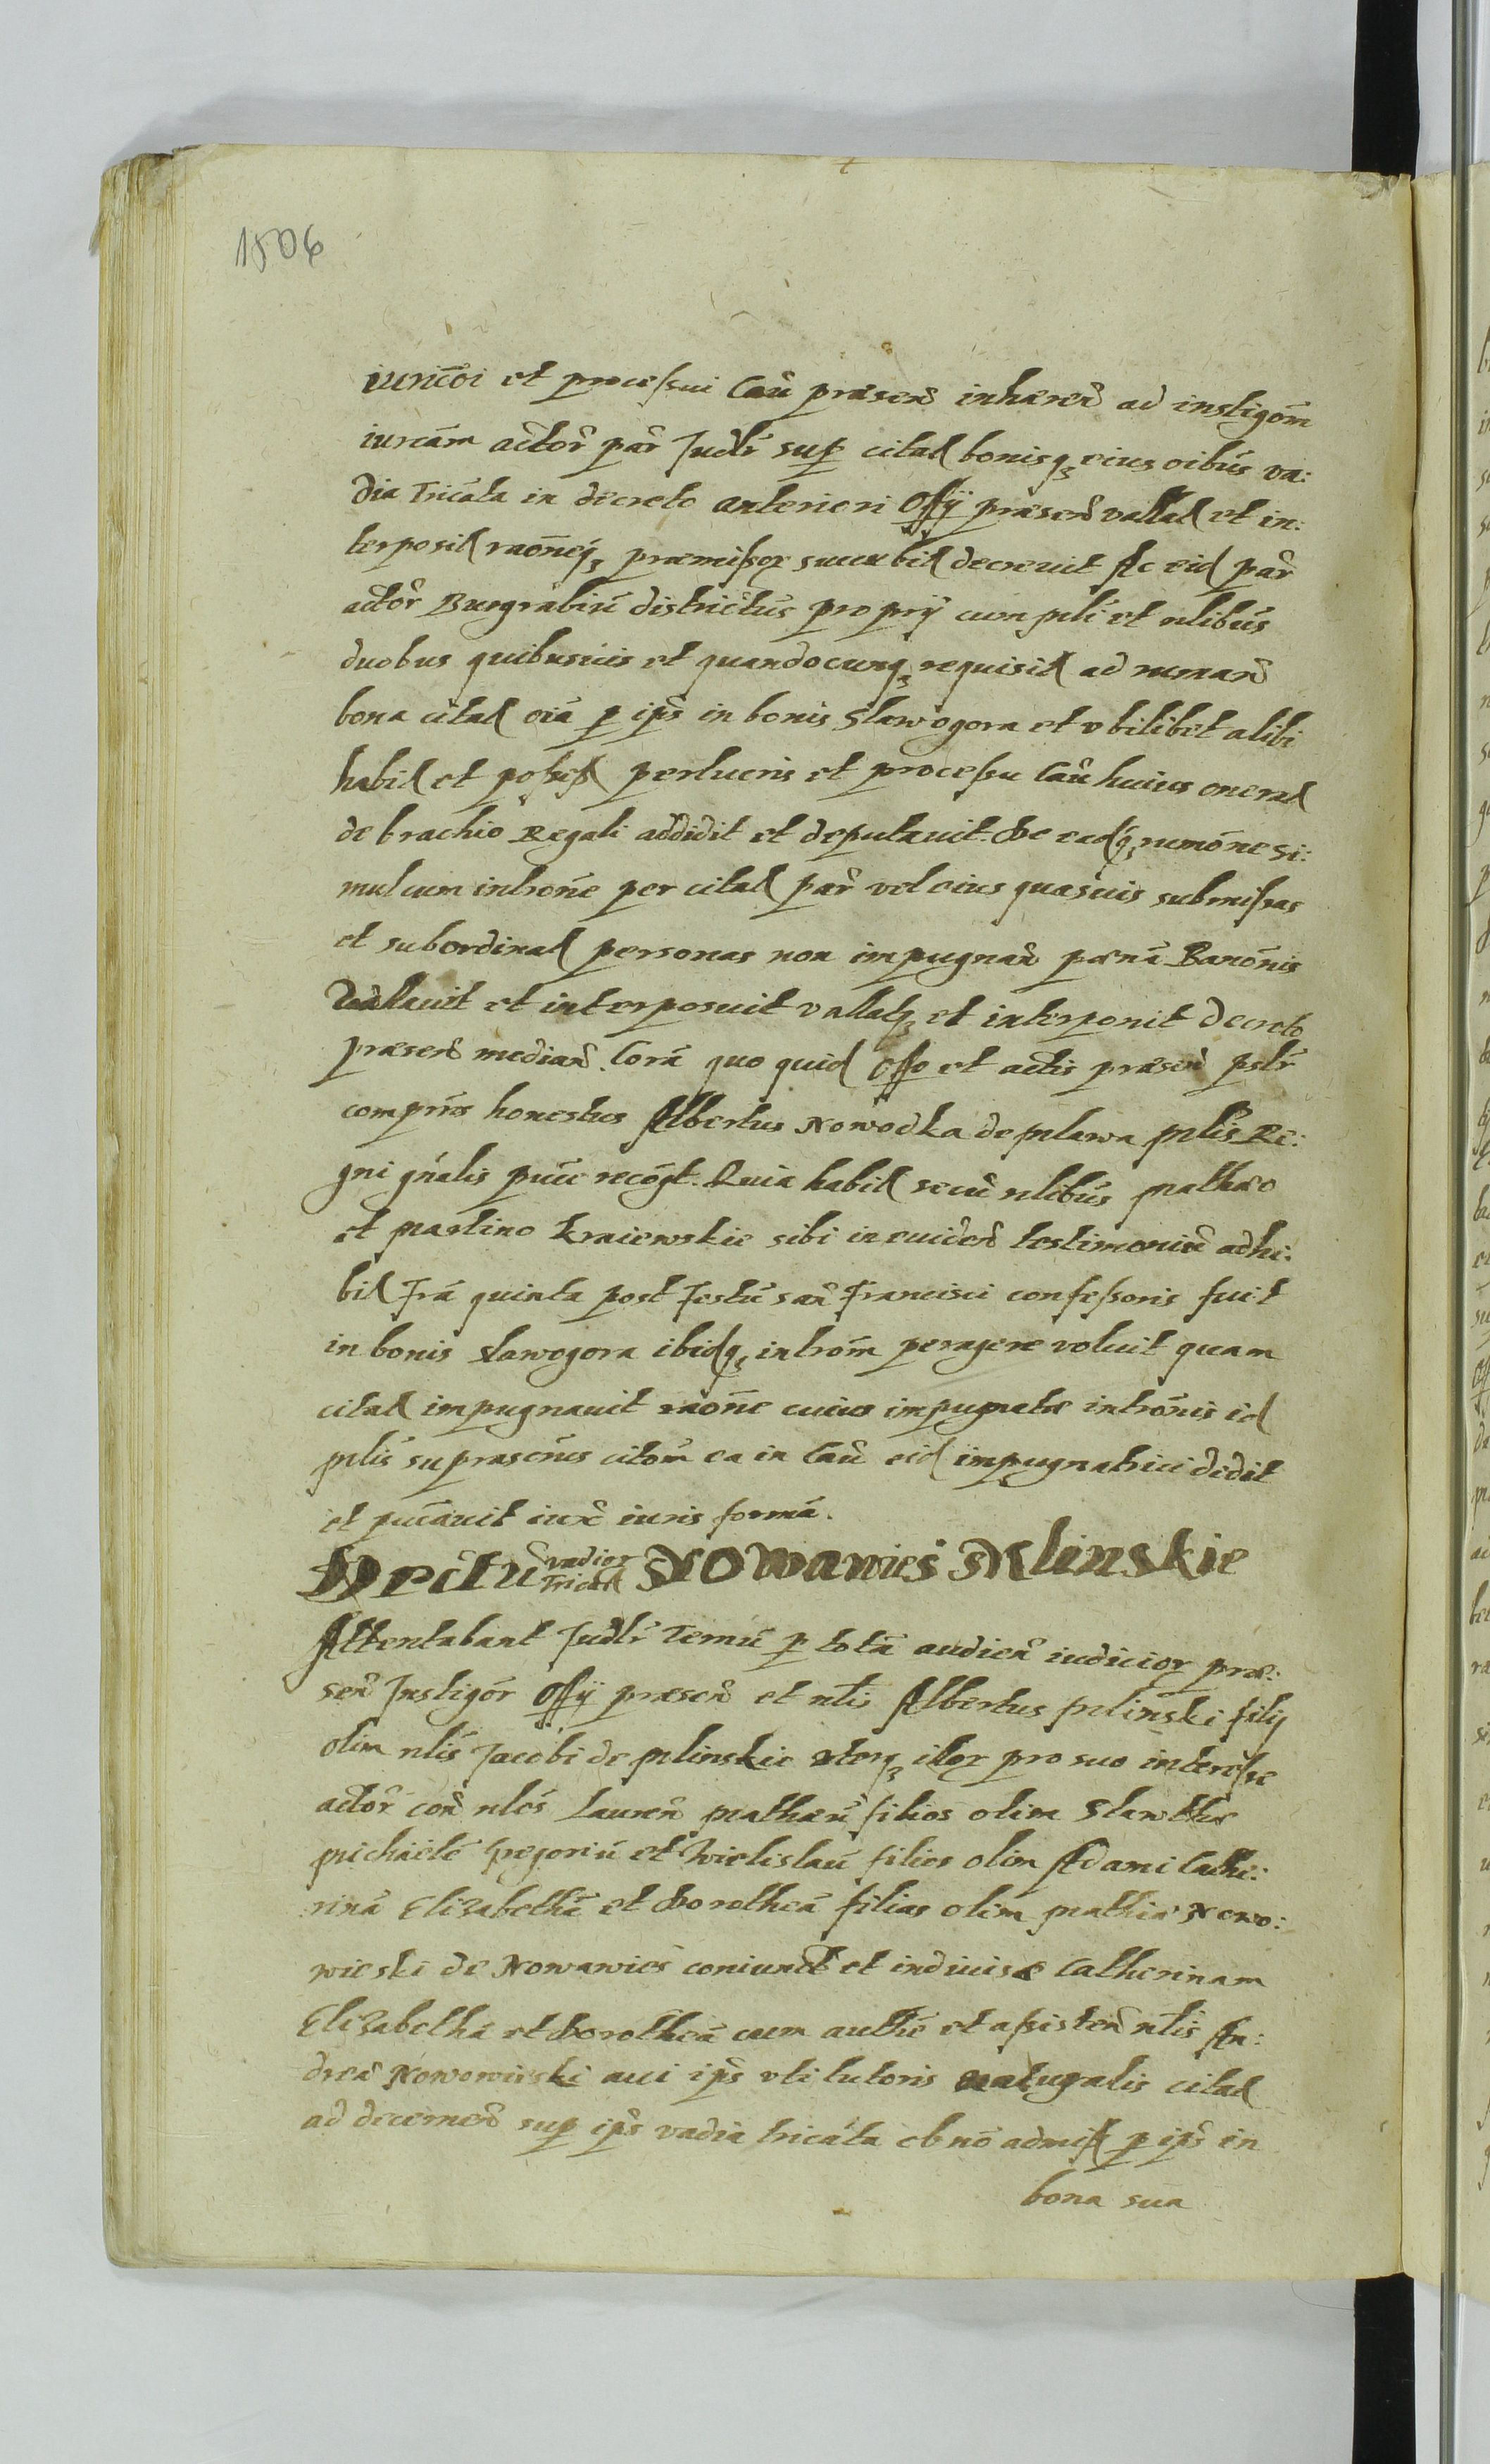 1506
iuricoi et processui Cau praesen inhaeren ad instigom
iuricam actor par Judlr sup citat bonisq eius oibus va:
dia tricata in decreto anteriori Offy praesen vallat et in:
terposit raoneq praemissor succubit decrevit Ac eid par
actor Burgrabiu districtus proprij cum mli et nlibus
duobus quibusvis et quandocunq requisit ad ruman
bona citat oia p ips in bonis Slawogora et vbilibet alibi
habit et possess perlucris et processu Cau huius onerat
de brachio Regali addidit et deputauit. De eadq rumone si:
mul cum introne per citat par vel eius quasuis submissas
et subordinat personas non impugnan poena Banonis
Vallauit et interposuit vallatq et interponit decreto
praesen median. Cora quo quid Offo et actis praesen pstr
compns honestus Albertus Nowodka de Mlawa mlis Re:
gni gnalis puce recogt. Quia habit secu nlibus Mathaeo
et Martino Kraiewskie sibi in euiden testimoniu adhi:
bit fra quinta post festu san Francisci confessoris fuit
in bonis Slawogora ibidq introm peragere voluit quam
citat impugnauit raone cuius impugnatae intronis id
mlis suprascrius citom ea in Cau eid impugnatrici dedit
et pucauit iux iuris forma.
Decretu vadior tricat Nowawies Mlinskie
Attentabant Judlr Termu p tota audien iudicior prae:
sen Instigor Offy praesen et nlis Albertus Mlinski filij
olim nlis Jacobi de Mlinskie vterq illor pro suo interesse
actor con nles Lauren Mathaeu filios olim Stanislai
Michaele Gregoriu et Wielislau filios olim Adami Cathe:
rina Elizabetha et Dorothea filias olim Mathiae Nowo:
wieski de Nowawies coniunct et indiuisae Catherinam
Elizabetha et Dorothea cum authe et assisten nlis An:
dreae Nowowieski aui ips vti tutoris naturalis citat
ad decernen sup ips vadia tricata ob no admiss p ips in
bona sua